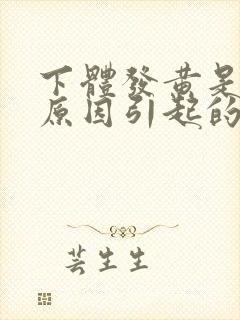 下體發黃是
原因引起的
芸生生